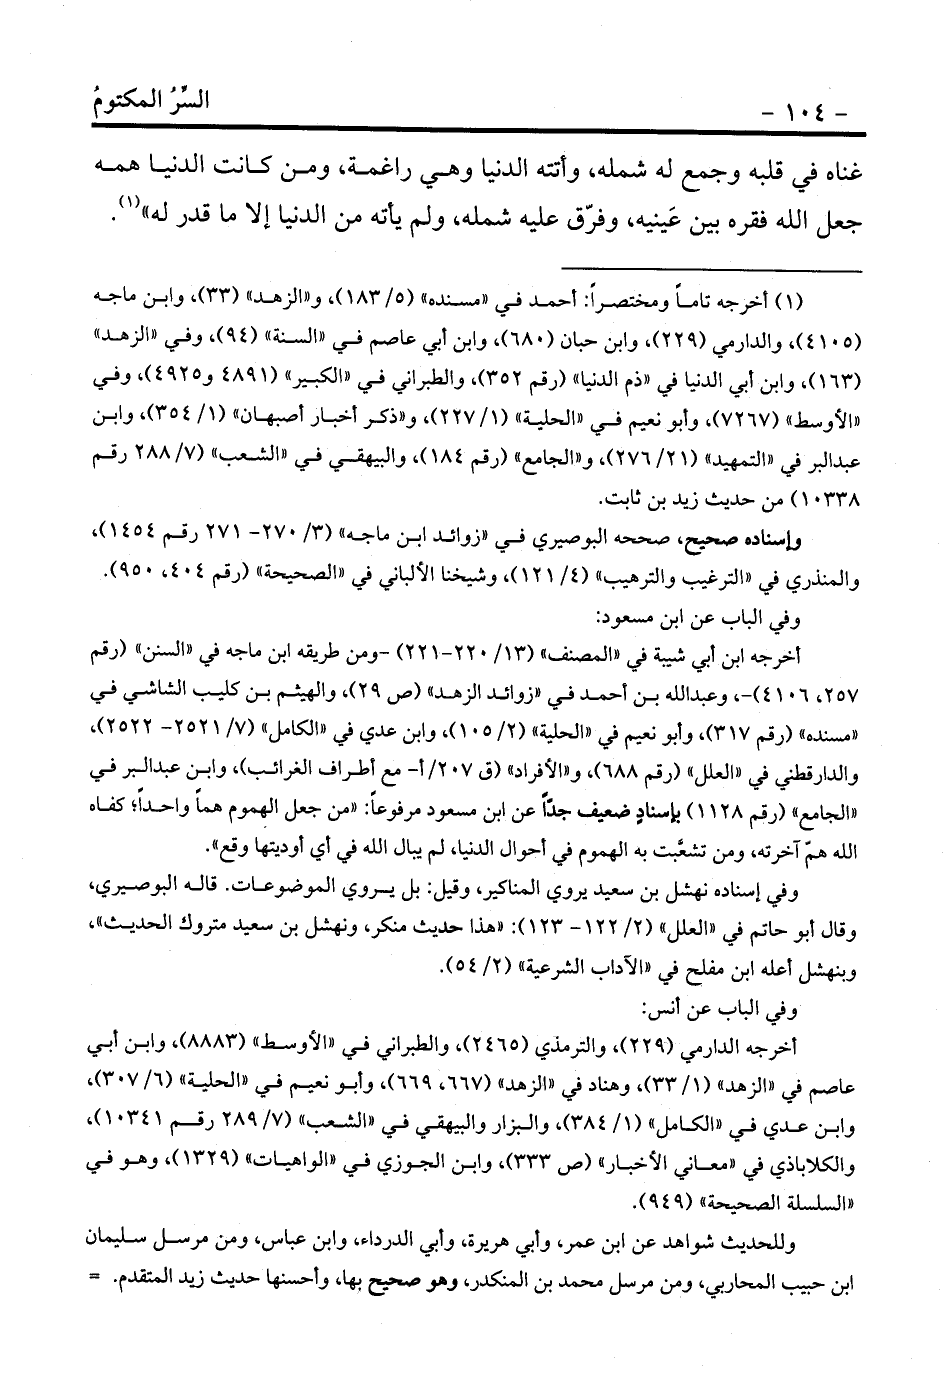 - ١٠٤ -
السِّرُ المكتومُ
غناه في قلبه وجمع له شمله، وأتته الدنيا وهي راغمة، ومن كانت الدنيا همه
جعل الله فقره بين عَينيه، وفرّق عليه شمله، ولم يأته من الدنيا إلا ما قدر له»(١).
(١) أخرجه تاماً ومختصراً: أحمد في «مسنده» (٥/ ١٨٣)، و«الزهد» (٣٣)، وابن ماجه
(٤١٠٥)، والدارمي (٢٢٩)، وابن حبان (٦٨٠)، وابن أبي عاصم في «السنة» (٩٤)، وفي «الزهد»
(١٦٣)، وابن أبي الدنيا في «ذم الدنيا» (رقم ٣٥٢)، والطبراني في «الكبير» (٤٨٩١ و٤٩٢٥)، وفي
«الأوسط» (٧٢٦٧)، وأبو نعيم في «الحلية» (١/ ٢٢٧)، و«ذكر أخبار أصبهان» (١/ ٣٥٤)، وابن
عبدالبر في «التمهيد» (٢١/ ٢٧٦)، و«الجامع» (رقم ١٨٤)، والبيهقي في «الشعب» (٧/ ٢٨٨ رقم
١٠٣٣٨) من حديث زيد بن ثابت.
وإسناده صحيح، صححه البوصيري في «زوائد ابن ماجه» (٣/ ٢٧٠- ٢٧١ رقم ١٤٥٤)،
والمنذري في «الترغيب والترهيب» (٤/ ١٢١)، وشيخنا الألباني في «الصحيحة» (رقم ٤٠٤، ٩٥٠).
وفي الباب عن ابن مسعود:
أخرجه ابن أبي شيبة في «المصنف» (١٣/ ٢٢٠-٢٢١) -ومن طريقه ابن ماجه في «السنن» (رقم
٢٥٧، ٤١٠٦)-، وعبدالله بن أحمد في «زوائد الزهد» (ص ٢٩)، والهيثم بن كليب الشاشي في
«مسنده» (رقم ٣١٧)، وأبو نعيم في «الحلية» (٢/ ١٠٥)، وابن عدي في «الكامل» (٧/ ٢٥٢١- ٢٥٢٢)،
والدارقطني في «العلل» (رقم ٦٨٨)، و«الأفراد» (ق ٢٠٧/ أ- مع أطراف الغرائب)، وابن عبدالبر في
«الجامع» (رقم ١١٢٨) بإسنادٍ ضعيف جدّاً عن ابن مسعود مرفوعاً: «من جعل الهموم هماً واحداً؛ كفاه
الله همّ آخرته، ومن تشعَّبت به الهموم في أحوال الدنيا، لم يبال الله في أي أوديتها وقع».
وفي إسناده نهشل بن سعيد يروي المناكير، وقيل: بل يروي الموضوعات. قاله البوصيري،
وقال أبو حاتم في «العلل» (٢/ ١٢٢- ١٢٣): «هذا حديث منكر، ونهشل بن سعيد متروك الحديث»،
وبنهشل أعله ابن مفلح في «الآداب الشرعية» (٢/ ٥٤).
وفي الباب عن أنس:
أخرجه الدارمي (٢٢٩)، والترمذي (٢٤٦٥)، والطبراني في «الأوسط» (٨٨٨٣)، وابن أبي
عاصم في «الزهد» (١/ ٣٣)، وهناد في «الزهد» (٦٦٧، ٦٦٩)، وأبو نعيم في «الحلية» (٦/ ٣٠٧)،
وابن عدي في «الكامل» (١/ ٣٨٤)، والبزار والبيهقي في «الشعب» (٧/ ٢٨٩ رقم ١٠٣٤١)،
والكلاباذي في «معاني الأخبار» (ص ٣٣٣)، وابن الجوزي في «الواهيات» (١٣٢٩)، وهو في
«السلسلة الصحيحة» (٩٤٩).
وللحديث شواهد عن ابن عمر، وأبي هريرة، وأبي الدرداء، وابن عباس، ومن مرسل سليمان
ابن حبيب المحاربي، ومن مرسل محمد بن المنكدر، وهو صحيح بها، وأحسنها حديث زيد المتقدم. =